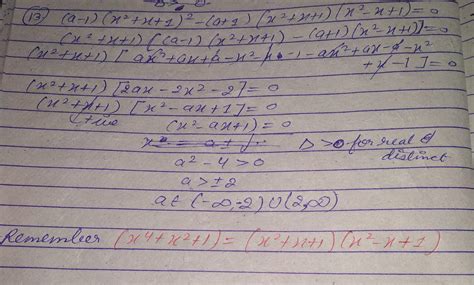 (13) (a-1) (x²+x+1)² - (a+1) (x²+x+1) (x²-x+1) = 0
(x²+x+1) [(a-1) (x²+x+1) - (a+1) (x²-x+1)] = 0
(x²+x+1) [ax²+ax+a-x²-x-1-ax²+ax-a-x²
+x-1] = 0
(x²+x+1) [2ax-2x²-2] = 0
(x²+x+1) [x²-ax+1] = 0
+ve (x²-ax+1) = 0
x = a ± Δ >0 for real &
distinct
a²-4>0
a>±2
a ∈ (-∞,-2) ∪ (2,∞)
Remember (x⁴+x²+1) = (x²+x+1) (x²-x+1)